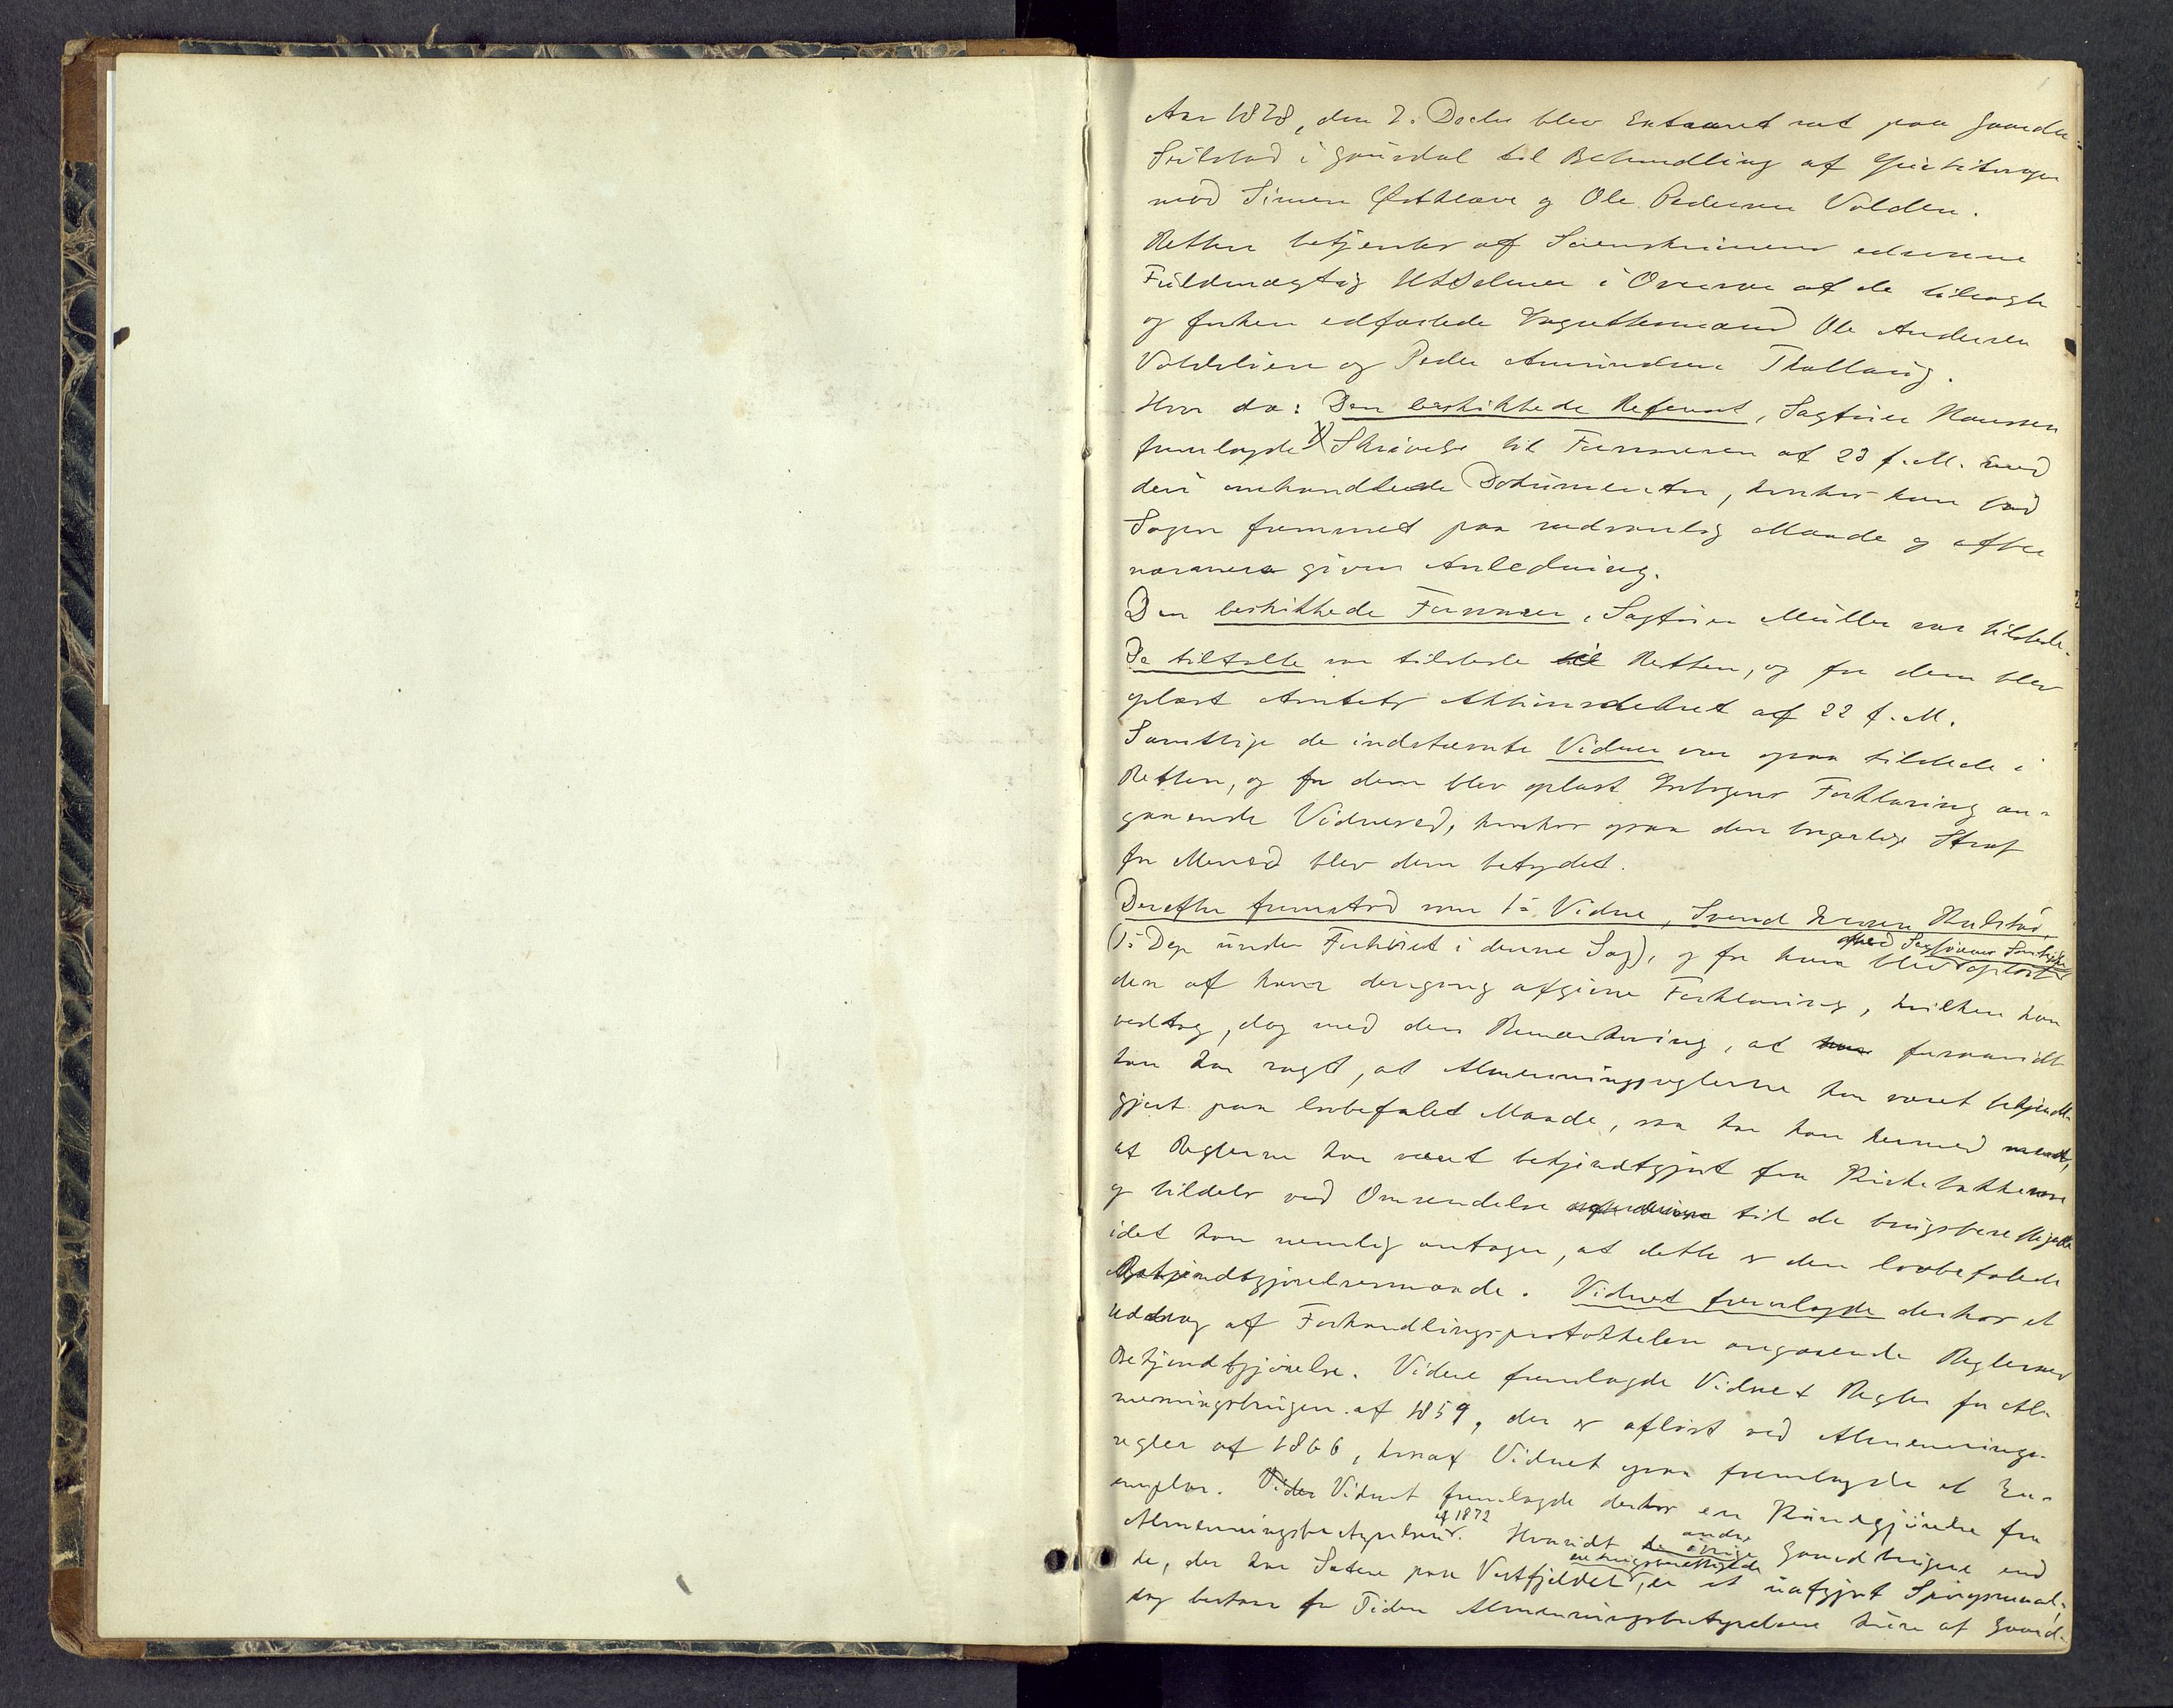 Aar 1878, den 2. Decbr blev Extraret sat paa Gaarden
i Gausdal til Behandling af Justitssagen
mod Simen Østklæve og Ole Pedersen Volden.
Retten betjentes af Sorenskriverens edsvorne
Fuldmægtig i Overvær af de tilsagte
og forhen edfæstede Lagrettesmænd Ole Andersen
Voldsløien og Peder Amundsen Thallaug.
Hvor da: Den beskikkede Referent, Sagfører Hanssen
fremlagde Skrivelse til Forsvareren af 23 f. M. med
deri omhandlede Dokumenter, hvorhos han bad
Sagen fremmet paa sædvanlig Maade og efter
nærmere given Anledning.
Den beskikkede Forsvarer, Sagfører Müller var tilstede.
De tiltalte var tilstede til Retten, og for dem blev
oplæst Amtets Aktionsdekret af 22 f. M.
Samtlige de indstævnte Vidner var ogsaa tilstede i
Retten, og for dem blev oplæst Lovbogens Forklaring an-
gaaende Vidneed, hvorhos ogsaa den borgerlige Straf
for Mened blev dem betydet.
Derefter fremstod som 1ste Vidne, Svend
(1ste Dep. under Forhøret i denne Sag), og for ham blev oplæst
med Sagførernes Samtykke
den af ham dengang afgivne Forklaring, hvilken han
vedtog, dog med den Bemærkning, at han forsaavidt
han har sagt, at Almenningsreglerne har været bekjendt-
gjort paa lovbefalet Maade, saa har han dermed ment,
at Reglerne har været bekjendtgjort fra Kirkebakkerne
og tildels ved Omsendelse til de brugsberettigede
idet han nemlig antager, at dette er den lovbefalede
Bekjendtgjørelsesmaade. Vidnet fremlagde derhos et
Uddrag af Forhandlingsprotokollen angaaende Reglernes
Bekjendtgjørelse. Videre fremlagde Vidnet Regler for Al-
menningsbrugen af 1859, der er afløst ved Almennings-
regler af 1866, hvoraf Vidnet ogsaa fremlagde et Ex-
emplar. Vider Vidnet fremlagde derhos en Kundgjørelse fra
Almenningsbestyrelsen af 1872. Hvorvidt de øvrige andre Gaardbrugere end
de, der har Sætere paa Vestfjeldet, er brugsberettigede er et uafgjort Spørgsmaal,
dog bestaar for Tiden Almenningsbestyrelsen kun af Gaard-